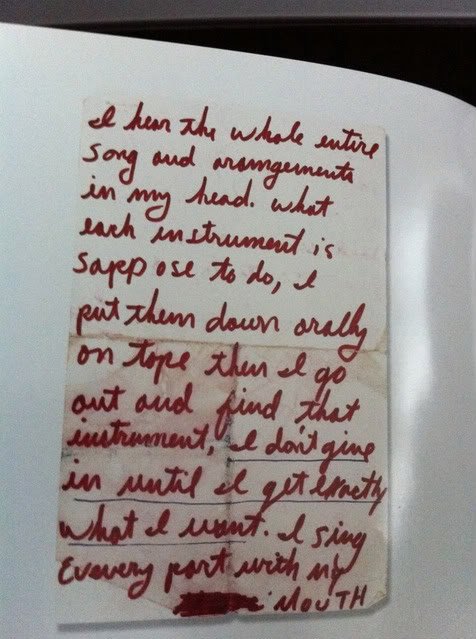 I hear the whole entire
song and arrangements
in my head. what
each instrument is
sappose to do, I
put them down orally
on tape then I go
out and find that
instrument, I don't give
in until I get exactly
what I want. I sing
Evevery part with my
MOUTH